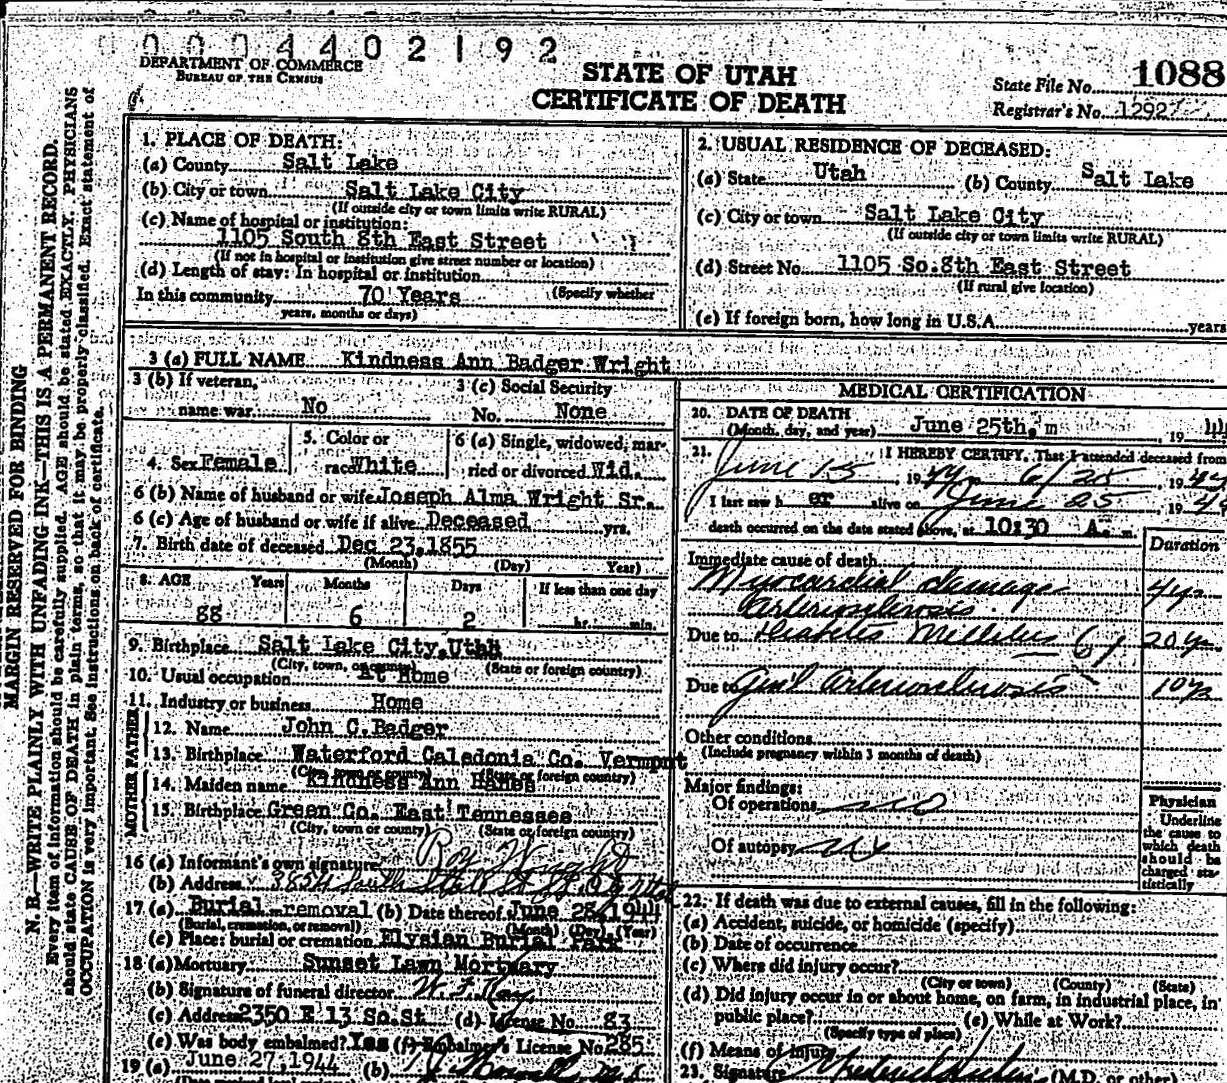 00004402192
DEPARTMENT OF COMMERCE
BUREAU OF THE CENSUS
STATE OF UTAH
CERTIFICATE OF DEATH
State File No. 1088
Registrar's No. 12927
MARGIN RESERVED FOR BINDING
N. B.—WRITE PLAINLY WITH UNFADING INK—THIS IS A PERMANENT RECORD.
Every item of information should be carefully supplied. AGE should be stated EXACTLY. PHYSICIANS
should state CAUSE OF DEATH in plain terms, so that it may be properly classified. Exact statement of
OCCUPATION is very important. See instructions on back of certificate.
1. PLACE OF DEATH:
(a) County Salt Lake
(b) City or town Salt Lake City
(If outside city or town limits write RURAL)
(c) Name of hospital or institution:
1105 South 8th East Street
(If not in hospital or institution give street number or location)
(d) Length of stay: In hospital or institution
In this community 70 Years (Specify whether
years, months or days)
2. USUAL RESIDENCE OF DECEASED:
(a) State Utah (b) County Salt Lake
(c) City or town Salt Lake City
(If outside city or town limits write RURAL)
(d) Street No. 1105 So. 8th East Street
(If rural give location)
(e) If foreign born, how long in U.S.A. years
3 (a) FULL NAME Kindness Ann Badger Wright
3 (b) If veteran,
name war. No
3 (c) Social Security
No. None
4. Sex Female
5. Color or
race White
6 (a) Single, widowed, mar-
ried or divorced Wid.
6 (b) Name of husband or wife Joseph Alma Wright Sr.
6 (c) Age of husband or wife if alive Deceased yrs.
7. Birth date of deceased Dec 23, 1855
(Month) (Day) Year)
8. AGE Years Months Days If less than one day
88 6 2 hr. min.
9. Birthplace Salt Lake City, Utah
(City, town, or county) (State or foreign country)
10. Usual occupation At Home
11. Industry or business Home
FATHER
12. Name John C. Badger
13. Birthplace Waterford Caledonia Co. Vermont
(City, town or county) (State or foreign country)
MOTHER
14. Maiden name Kindness Ann Hanes
15. Birthplace Green Co. East Tennessee
(City, town or county) (State or foreign country)
16 (a) Informant's own signature Roy Wright
(b) Address 3854 South State St
17 (a) Burial removal (b) Date thereof June 28, 1944
(Burial, cremation, or removal) (Month) (Day) (Year)
(c) Place: burial or cremation Elysian Burial Park
18 (a) Mortuary Sunset Lawn Mortuary
(b) Signature of funeral director
(c) Address 2350 E 13 So. St (d) License No. 83
(e) Was body embalmed? Yes (f) Embalmer's License No. 285
19 (a) June 27, 1944 (b)
MEDICAL CERTIFICATION
20. DATE OF DEATH
(Month, day, and year) June 25th, m , 19 44
21. I HEREBY CERTIFY, That I attended deceased from
June 15 , 19 44, 6/25 , 19 44
I last saw h er alive on June 25 , 19 44
death occurred on the date stated above, at 10:30 A. m.
Duration
Immediate cause of death
Myocardial damage 4 yrs
Arteriosclerosis.
Due to Diabetes Mellitus 61 20 yrs.
Due to Gen'l arteriosclerosis 10 yrs
Other conditions
(Include pregnancy within 3 months of death)
Major findings:
Of operations no
Of autopsy no
Physician
Underline
the cause to
which death
should be
charged sta-
tistically
22. If death was due to external causes, fill in the following:
(a) Accident, suicide, or homicide (specify)
(b) Date of occurrence
(c) Where did injury occur?
(City or town) (County) (State)
(d) Did injury occur in or about home, on farm, in industrial place, in
public place? (e) While at Work?
(Specify type of place)
(f) Means of injury
23. Signature (M.D. or other)